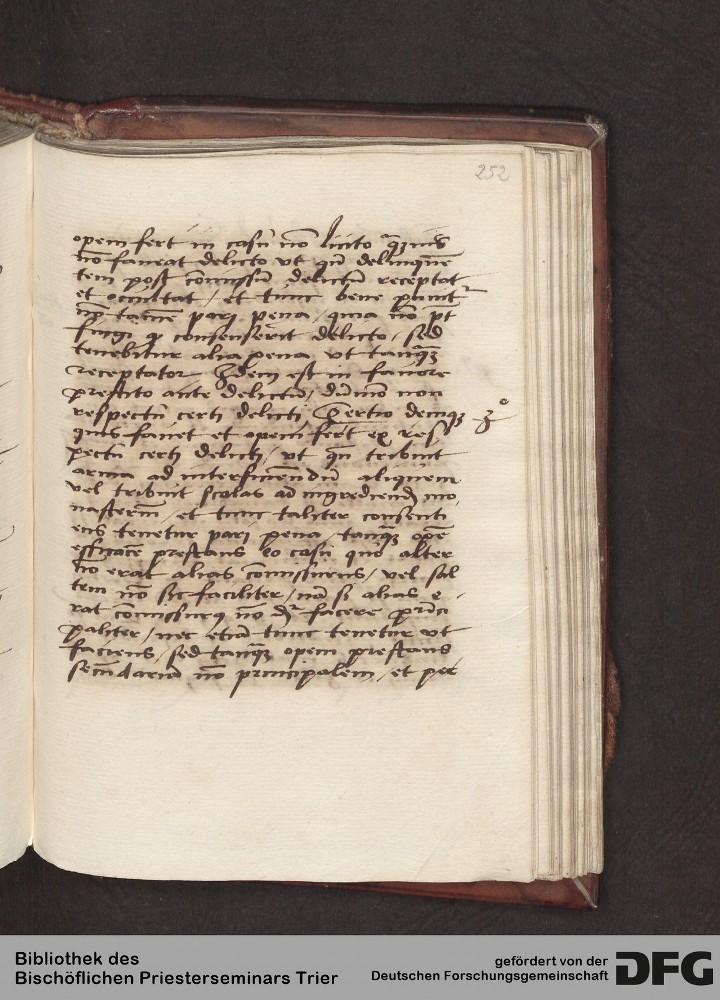 252
opem fert in casu nō licito q̄ꝫuis
nō faueat delicto vt qn̄ delinquē
tem post cōmissū delictū receptat
et occultat / et tunc bene punit᷑
nō tamē pari pena / quia nō pt̄
fingi ꝙ consenserit delicto / sed
tenebitur alia pena vt tanq̄ꝫ
receptator Idem est in fauore
prestito ante delictū / dūmō non
respectu certi delicti Tertio deniqꝫ
3º
quis fauet et opem fert ex res
pectu certi delicti / vt qn̄ tribuit
arma ad interficiendū aliquem
vel tribuit scalas ad ingrediend̄ mo
nasteriū / et tunc taliter consenti
ens tenetur pari pena / tanq̄ꝫ opē
efficacē prestans eo casu quo alter
nō erat alias cōmissurus / vel sal
tem nō sic faciliter / nā si alias e
rat cōmissurus nō dr̄ facere prīci
paliter / nec etiā tunc tenetur vt
faciens / sed tanq̄ꝫ opem prestans
secūdariā nō principalem / et per
Bibliothek des
Bischöflichen Priesterseminars Trier
gefördert von der
Deutschen Forschungsgemeinschaft
DFG